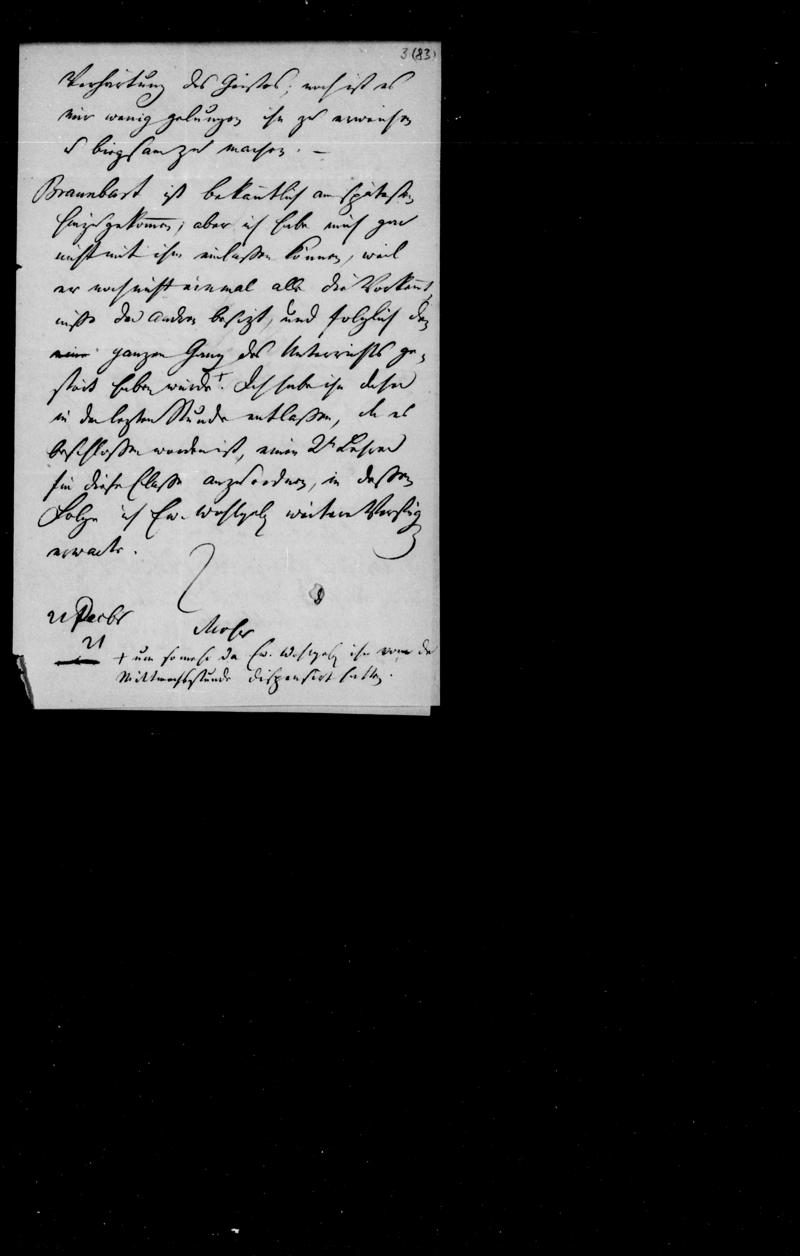 3 (83)
Verhärtung des Geistes; noch ist es
mir wenig gelungen ihn zu erweichen
& biegsam zu machen. —
Braunbart ist bekañtlich am spätesten
hinzugekom̄en; aber ich habe mich gar
nicht mit ihm einlassen können, weil
er noch nicht einmal alle die Vorkeñt,
nisse der Andern besizt, und folglich den
ganzen Gang des Unterrichts ge,
stört haben würde +. Ich habe ihn daher
in der lezten Stunde entlassen, da es
beschlossen worden ist, einen 2n Lehrer
für diese Classe anzuordnen, in dessen
Folge ich Ew. Wohlgeb weitere Verfüg
erwarte.
21 Decbr
21
Moser
+ um somehr da Ew. Wohlgeb ihn von der
Mittwochsstunde dispensirt hatten.